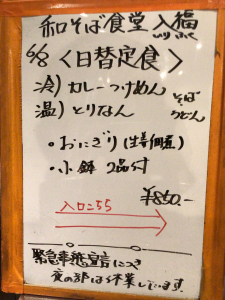 和そば食堂 入福
6/8 〈日替定食〉
冷) カレーつけめん そば
温) とりなん うどん
・おにぎり(生姜佃煮)
・小鉢 2品付
¥850.-
入口こちら
緊急事態宣言につき
夜の部は休業しています